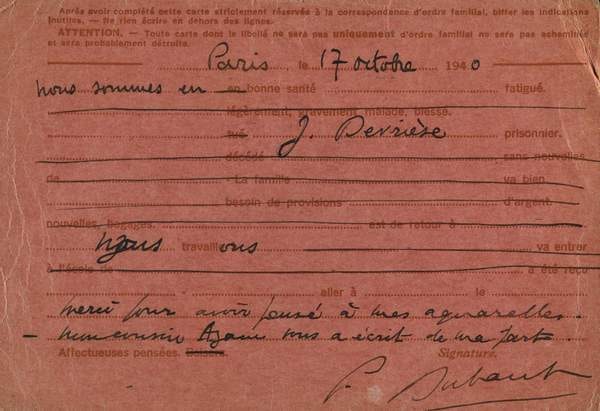 Après avoir complété cette carte strictement réservée à la correspondance d'ordre familial, biffer les indications
inutiles. — Ne rien écrire en dehors des lignes.
ATTENTION. — Toute carte dont le libellé ne sera pas uniquement d'ordre familial ne sera pas acheminée
et sera probablement détruite.
Paris le 17 octobre 1940
nous sommes en bonne santé fatigué.
légèrement, gravement malade, blessé.
tué J. Devrièse prisonnier.
décédé sans nouvelles
de La famille va bien
besoin de provisions d'argent.
nouvelles, bagages. est de retour à
nous travaill ons va entrer
à l'école de a été reçu
aller à le
merci pour avoir pensé à mes aquarelles.
— mon cousin vous a écrit de ma part.
Affectueuses pensées. Baisers. Signature.